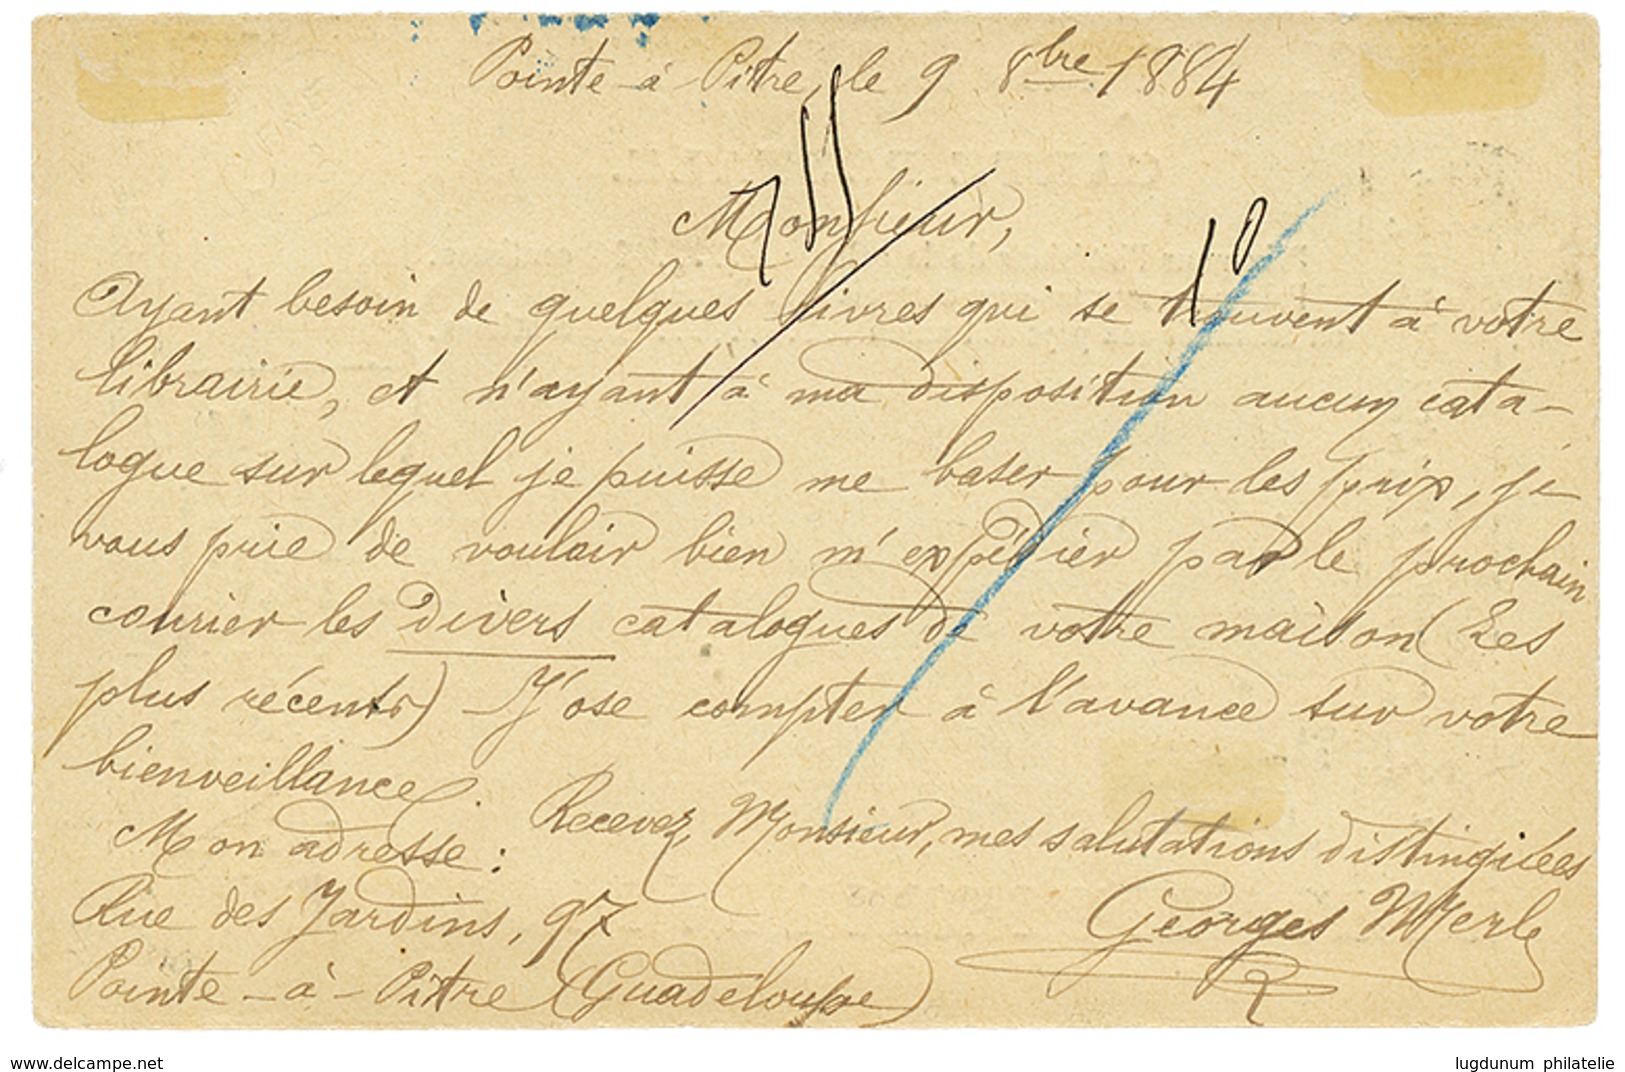 Pointe-à-Pitre, le 9 8bre 1884
Monsieur,
10
Ayant besoin de quelques livres qui se trouvent à votre
librairie, et n'ayant à ma disposition aucun cata-
logue sur lequel je puisse me baser pour les prix, je
vous prie de vouloir bien m'expédier par le prochain
courier les divers catalogues de votre maison (Les
plus récents) J'ose compter à l'avance sur votre
bienveillance.
Recevez, Monsieur, mes salutations distinguées
Mon adresse:
Georges Merle
Rue des Jardins, 97
Pointe-à-Pitre (Guadeloupe)
www.delcampe.net
lugdunum philatelie